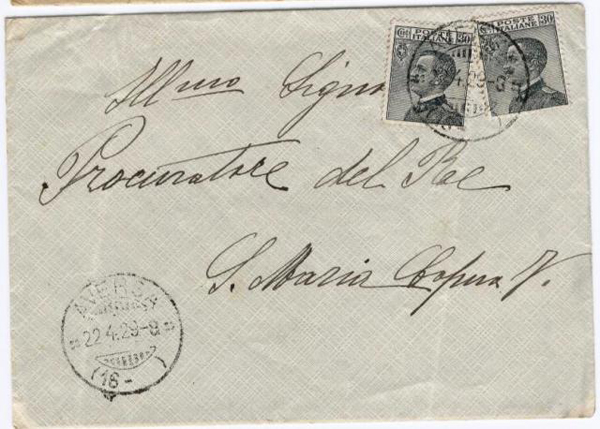 POSTE ITALIANE 30
POSTE ITALIANE 30
Ill mo Signor
Procuratore del Re
S. Maria Capua V.
AVERSA
22.4.29-8
(16-)